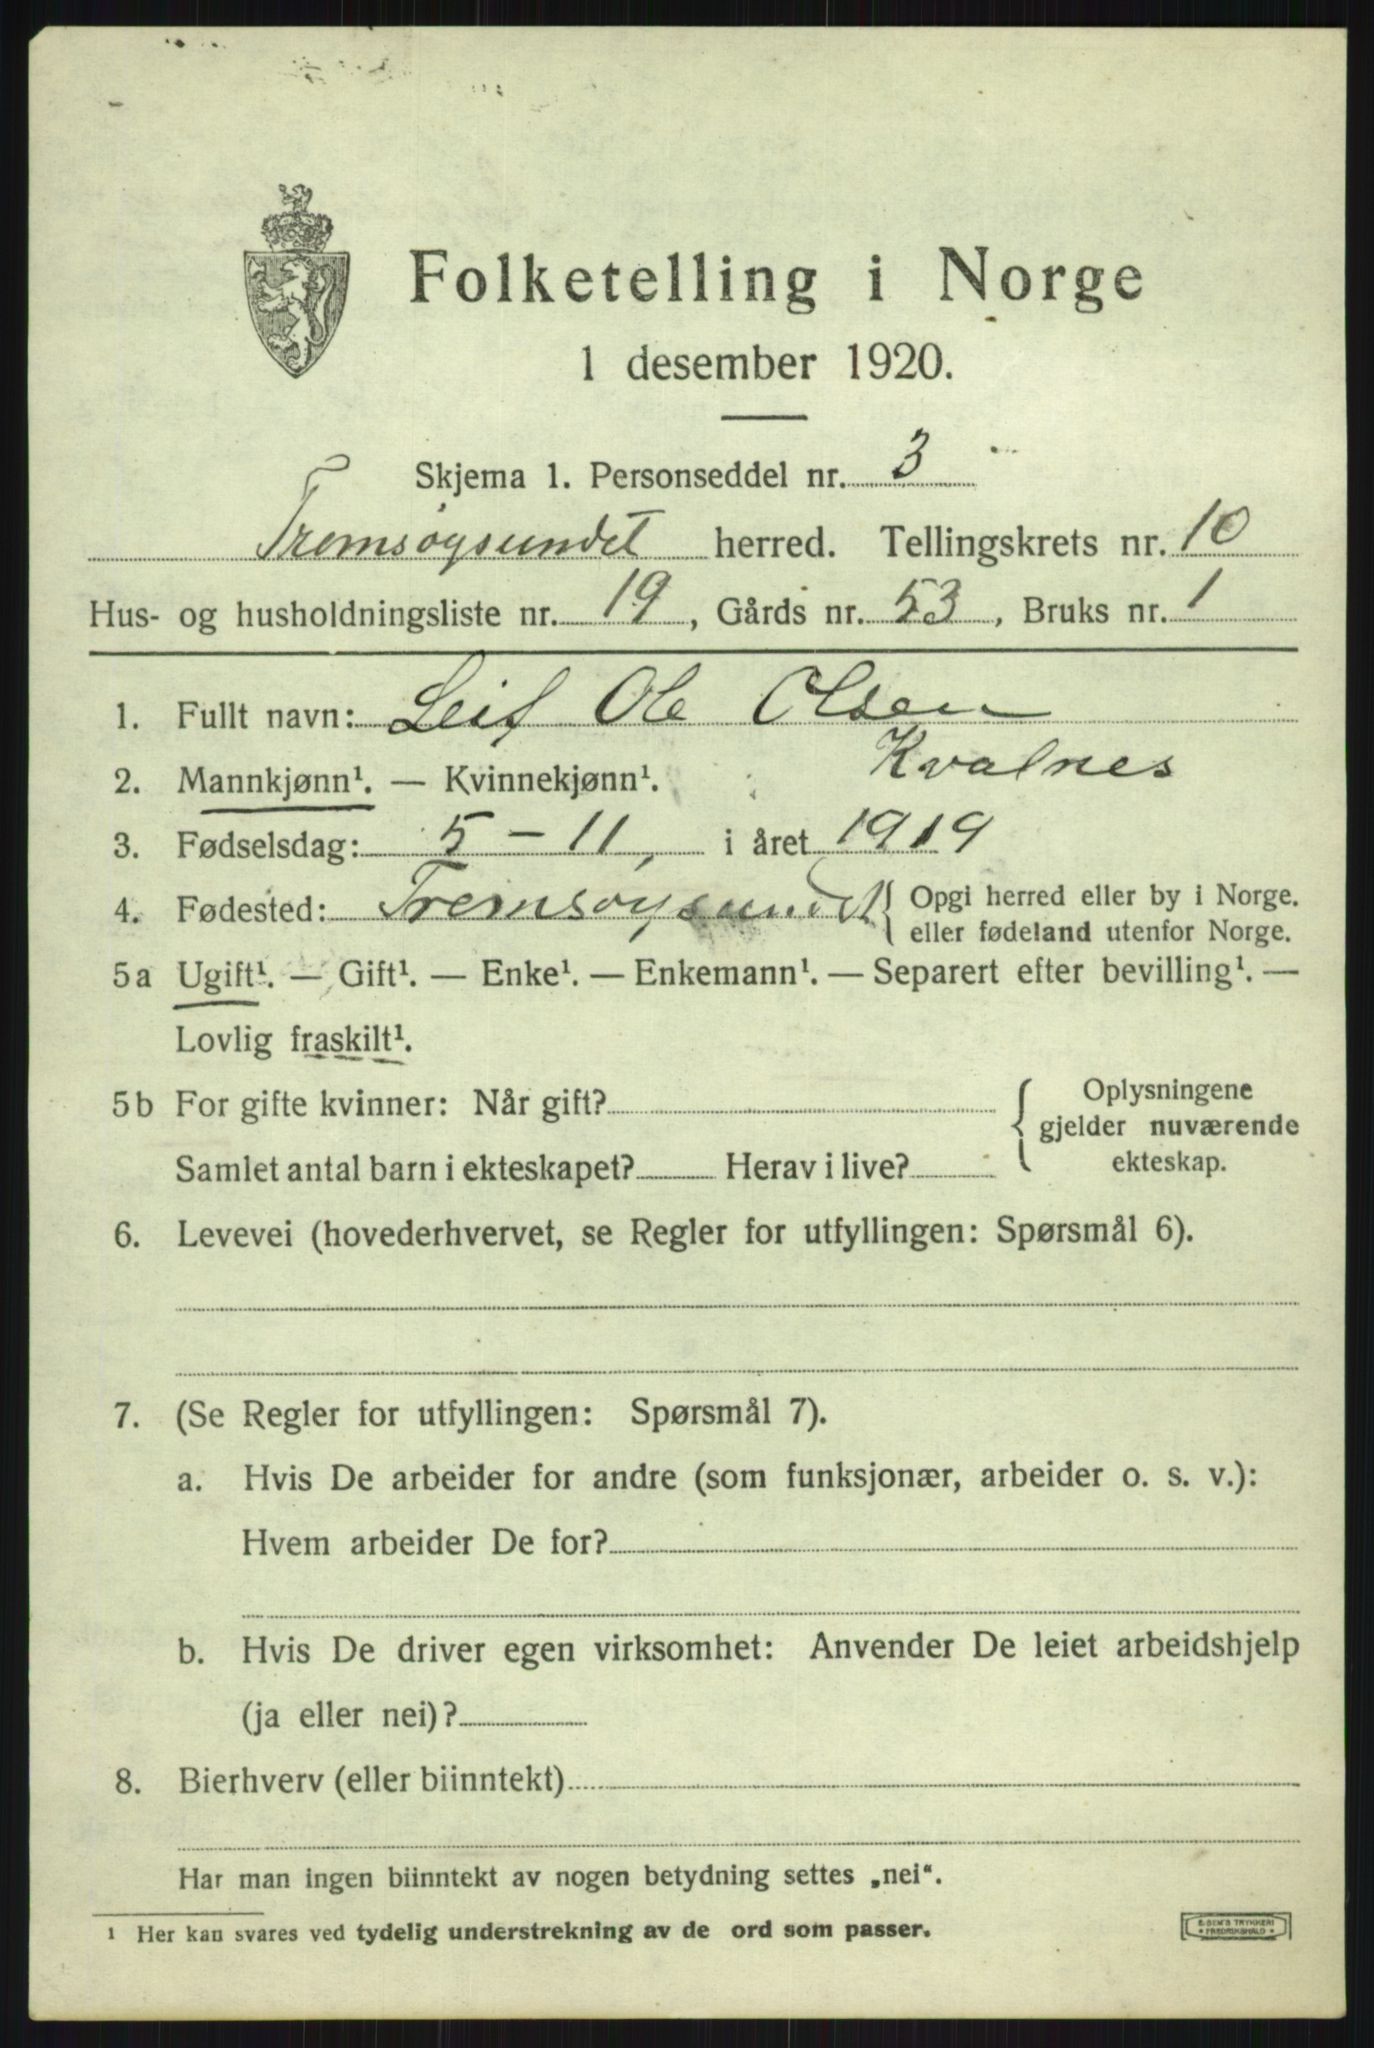 Folketelling i Norge
1 desember 1920.
Skjema 1. Personseddel nr. 3
Tromsøysundet herred. Tellingskrets nr. 10
Hus- og husholdningsliste nr. 19, Gårds nr. 53, Bruks nr. 1
1. Fullt navn: Leif Ole Olsen
Kvalnes
2. Mannkjønn¹. — Kvinnekjønn¹.
3. Fødselsdag: 5 - 11, i året 1919
4. Fødested: Tromsøysundet { Opgi herred eller by i Norge.
eller fødeland utenfor Norge.
5a Ugift¹. — Gift¹. — Enke¹. — Enkemann¹. — Separert efter bevilling¹. —
Lovlig fraskilt¹.
5b For gifte kvinner: Når gift? { Oplysningene
gjelder nuværende
Samlet antal barn i ekteskapet? Herav i live? ekteskap.
6. Levevei (hovederhvervet, se Regler for utfyllingen: Spørsmål 6).
7. (Se Regler for utfyllingen: Spørsmål 7).
a. Hvis De arbeider for andre (som funksjonær, arbeider o. s. v.):
Hvem arbeider De for?
b. Hvis De driver egen virksomhet: Anvender De leiet arbeidshjelp
(ja eller nei)?
8. Bierhverv (eller biinntekt)
Har man ingen biinntekt av nogen betydning settes „nei“.
¹ Her kan svares ved tydelig understrekning av de ord som passer.
E. SEM'S TRYKKERI
FREDRIKSHALD